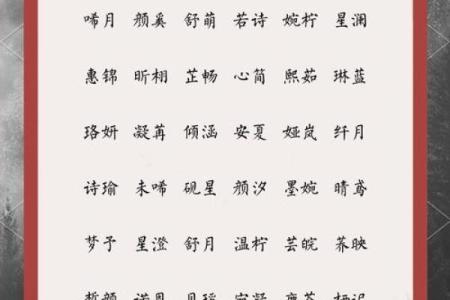 唏月 颜奚 舒萌 若诗 婉柠 星澜
惠锦 昕栩 芷畅 心简 熙茹 琳蓝
珞妍 凝苒 倾涵 安夏 娅岚 纤月
诗瑜 未唏 砚星 颜汐 墨婉 晴鸢
梦予 星澄 舒月 温柠 芸皖 荞映